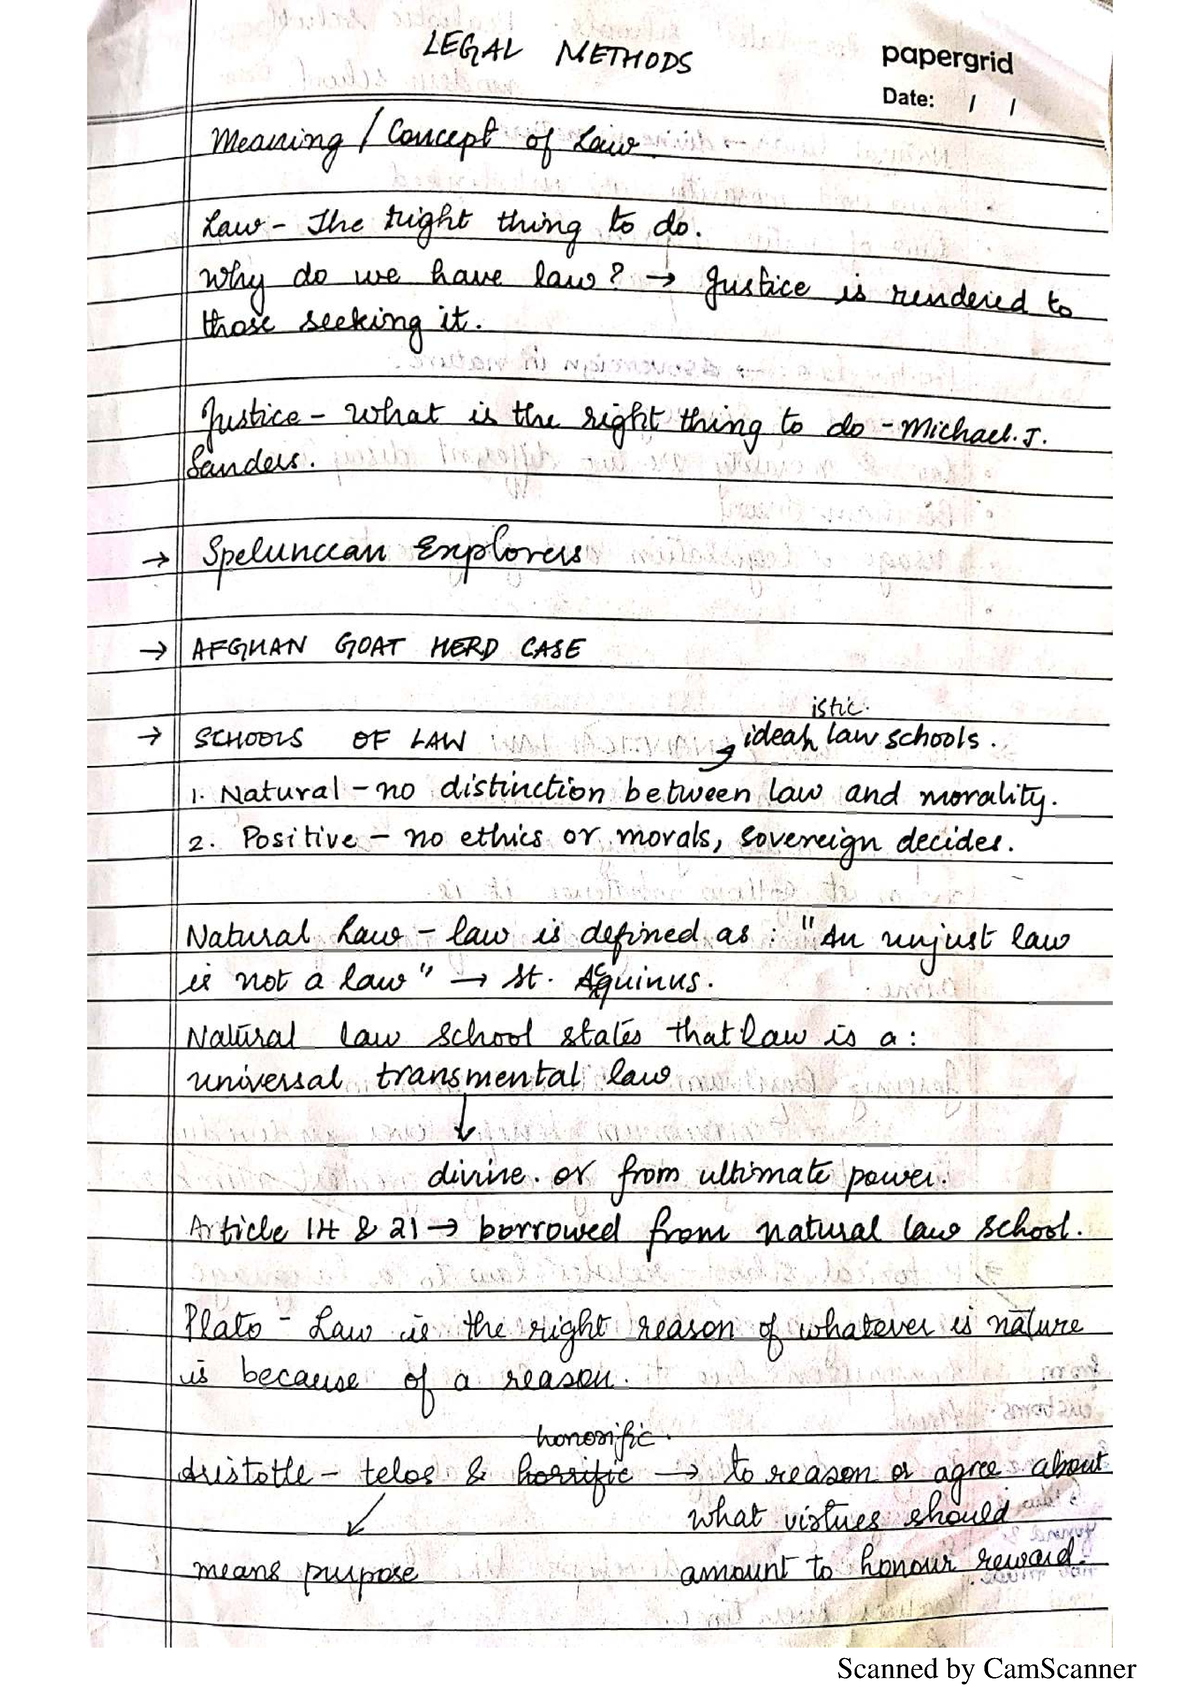 LEGAL METHODS
papergrid
Date: / /
Meaning / Concept of Law
Law - The right thing to do.
Why do we have law? → Justice is rendered to
those seeking it.
Justice - What is the right thing to do - Michael. J.
Sanders.
→ Speluncean Explorers
→ AFGHAN GOAT HERD CASE
istic.
→ SCHOOLS OF LAW ideal law schools.
1. Natural - no distinction between law and morality.
2. Positive - no ethics or morals, sovereign decides.
Natural Law - law is defined as : "An unjust law
is not a law" → St. Acquinus.
Natural law school states that law is a :
universal transmental law
↓
divine. or from ultimate power.
Article 14 & 21 → borrowed from natural law school.
Plato - Law is the right reason of whatever is nature
is because of a reason.
honorific.
Aristotle - telos & horrific → to reason or agree about
what virtues should
means purpose amount to honour reward.
Scanned by CamScanner